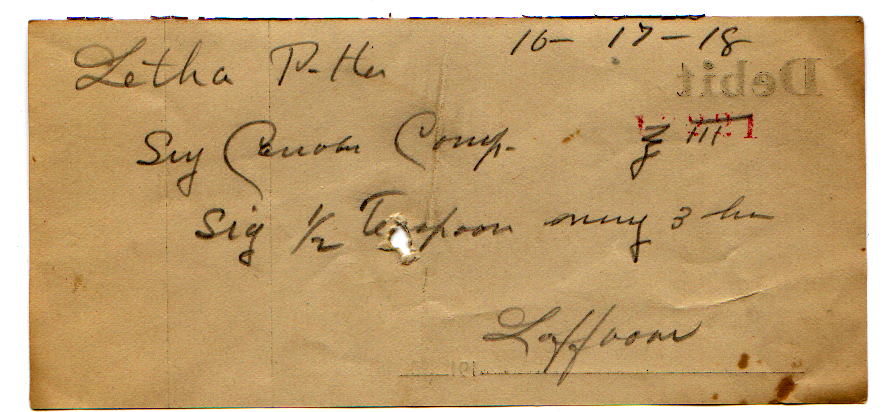 16- 17-18
Letha Potter
Debit
Comp. ℥ III
Sig 1/2 Teaspoon every 3 hr
Laffoon
191